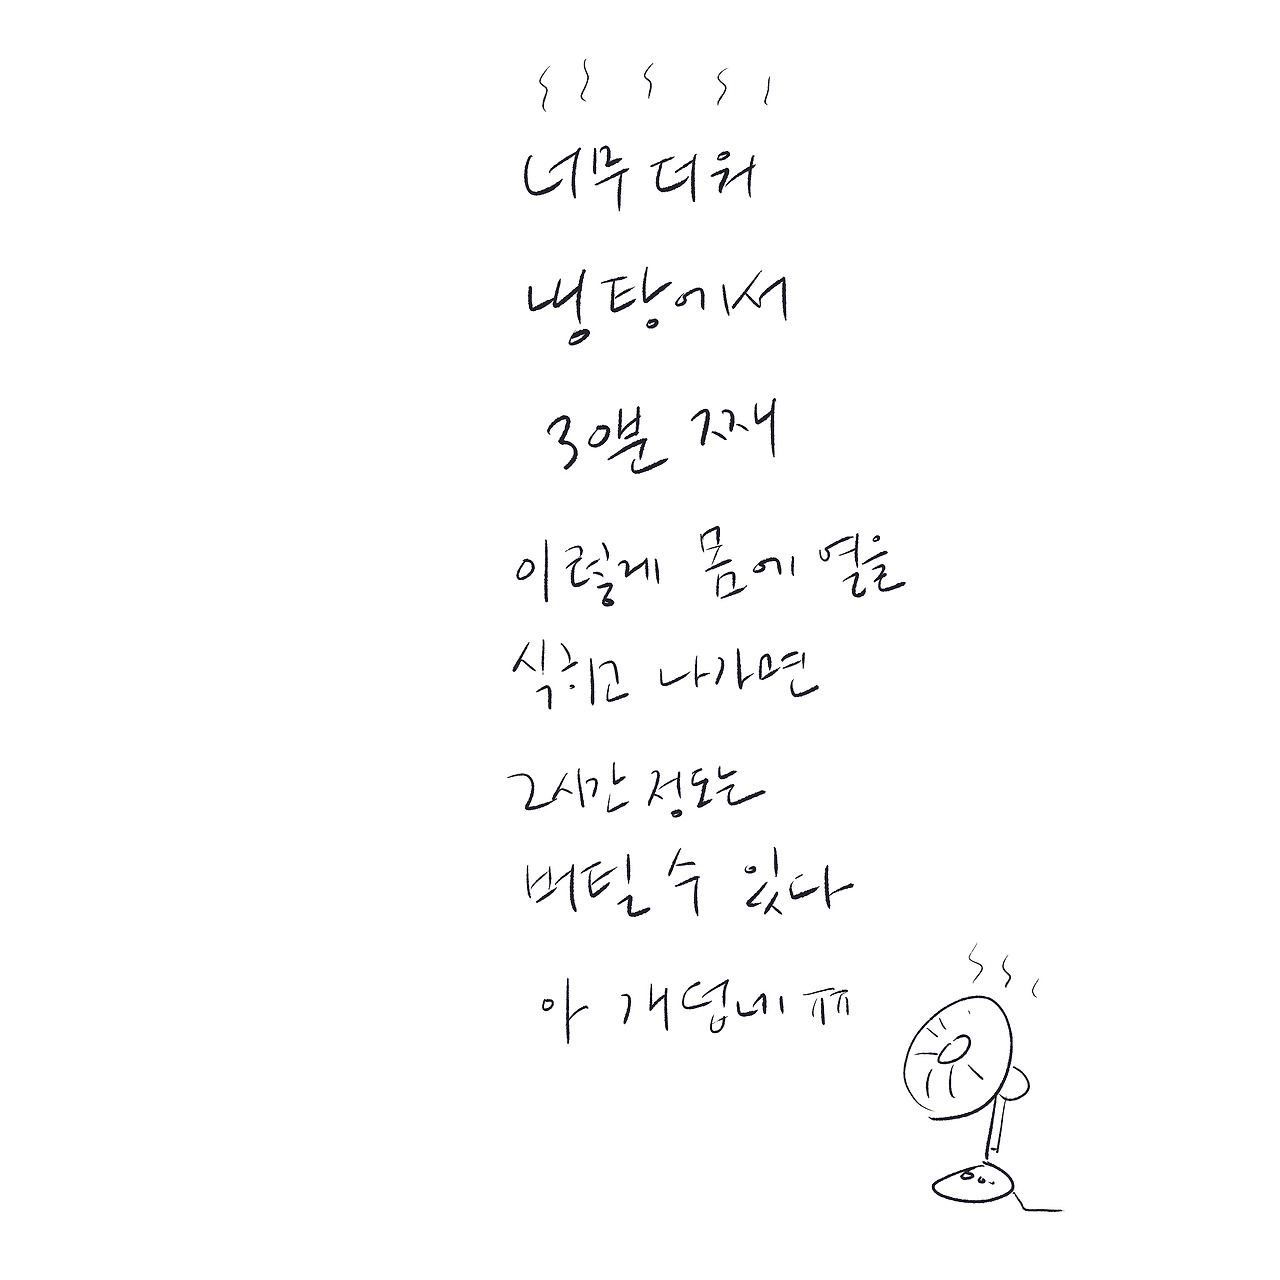 너무 더워
냉탕에서
30분 째
이렇게 몸에 열을
식히고 나가면
2시간 정도는
버틸 수 있다
아 개덥네 ㅠㅠ